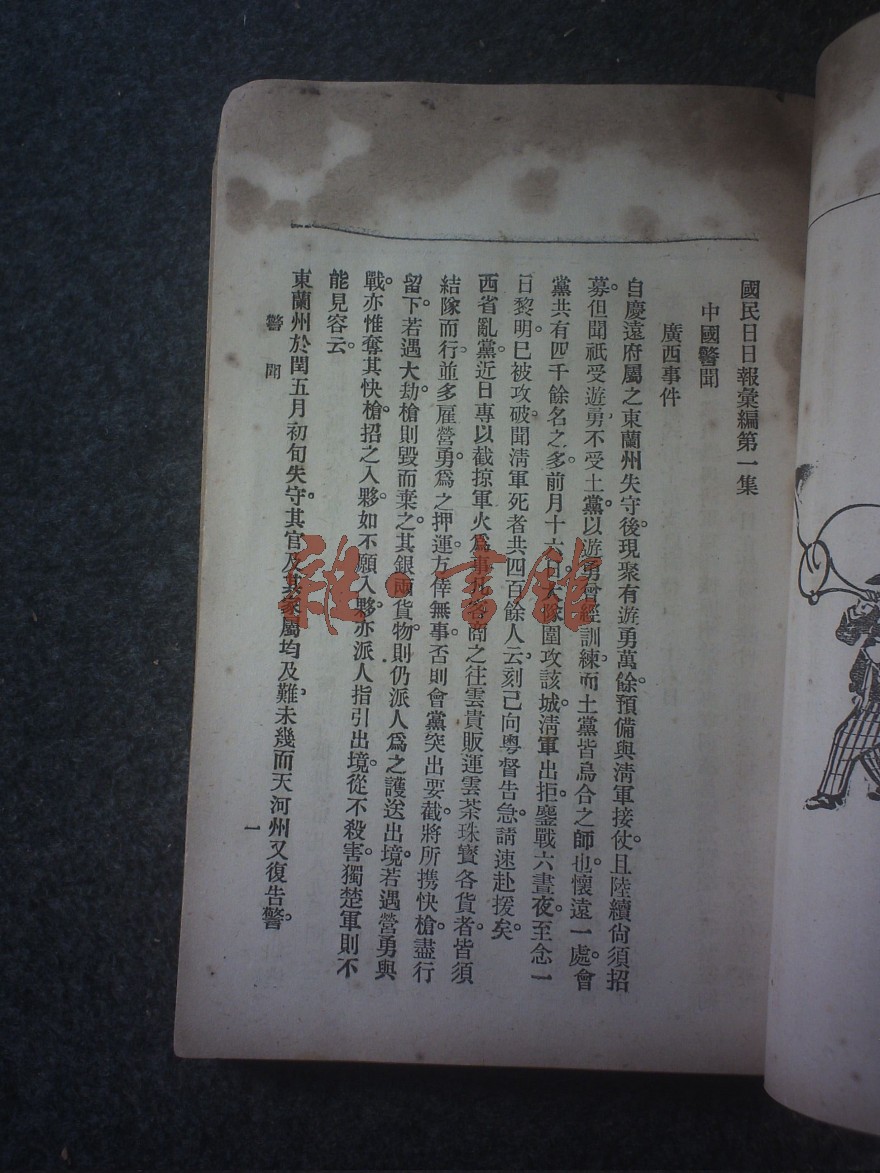 國民日日報彙編第一集
中國警聞
廣西事件
自慶遠府屬之東蘭州失守後。現聚有遊勇萬餘。預備與淸軍接仗。且陸續尙須招
募。但聞祇受遊勇。不受土黨。以遊勇曾經訓練。而土黨皆烏合之師也。懷遠一處。會
黨共有四千餘名之多。前月十六日。大隊圍攻該城。淸軍出拒。鏖戰六晝夜。至念一
日黎明。巳被攻破。聞淸軍死者共四百餘人。云刻已向粵督告急。請速赴援矣。
西省亂黨。近日專以截掠軍火爲事。凡客商之往雲貴販運雲茶珠寶各貨者。皆須
結隊而行。並多雇營勇爲之押運。方倖無事。否則會黨突出要截。將所携快槍。盡行
留下。若遇大劫。槍則毀而棄之。其銀兩貨物。則仍派人爲之護送出境。若遇營勇與
戰。亦惟奪其快槍。招之入夥。如不願入夥。亦派人指引出境。從不殺害。獨楚軍則不
能見容云。
東蘭州於閏五月初旬失守。其官及其家屬均及難。未幾而天河州又復告警。
警聞
一
雜·書館